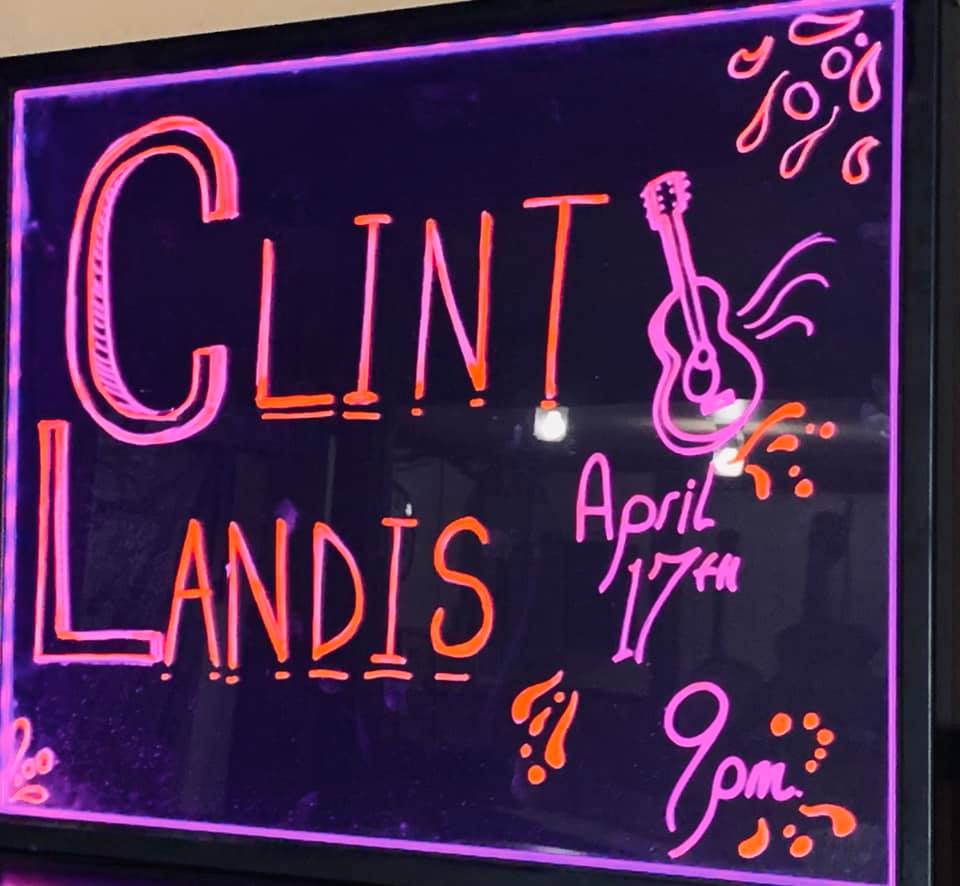 CLINT
LANDIS
April
17TH
9pm.